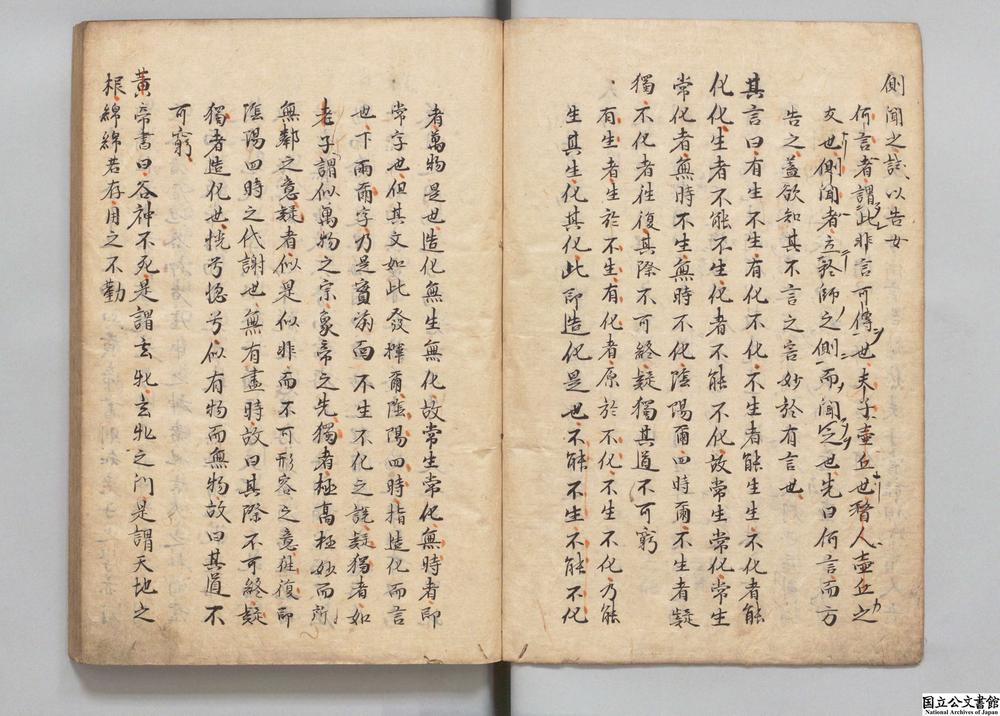 側聞之試以告女
何言者謂此非言可傳也夫子壺丘也瞀人壺丘之
友也側聞者立於師之側而聞之也先曰何言而方
告之蓋欲知其不言之言妙於有言也
其言曰有生不生有化不化不生者能生生不化者能
化化生者不能不生化者不能不化故常生常化常生
常化者無時不生無時不化陰陽爾四時爾不生者疑
獨不化者往復其際不可終疑獨其道不可窮
有生者生於不生有化者原於不化不生不化乃能
生其生化其化此即造化是也不能不生不能不化
者萬物是也造化無生無化故常生常化無時者即
常字也但其文如此發揮爾陰陽四時指造化而言
也下兩爾字乃是賓前面不生不化之說疑獨者如
老子謂似萬物之宗象帝之先獨者極高極妙而所
無鄰之意疑者似是似非而不可形容之意往復即
陰陽四時之代謝也無有盡時故曰其際不可終疑
獨者造化也恍兮惚兮似有物而無物故曰其道不
可窮
黄帝書曰谷神不死是謂玄牝玄牝之門是謂天地之
根綿綿若存用之不勤
国立公文書館
National Archives of Japan